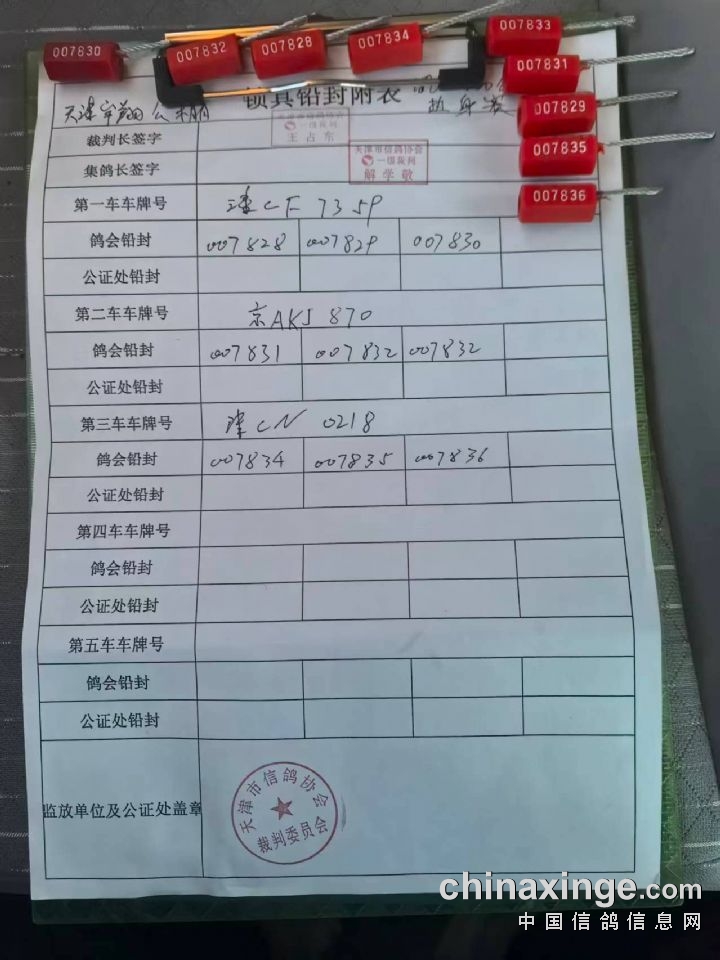 007830
007832
007828
007834
007833
007831
007829
007835
007836
锁具铅封附表
天津市信鸽协会
一级裁判
王占东
天津市信鸽协会
一级裁判
解学敬
裁判长签字
集鸽长签字
第一车车牌号 津CF 735P
鸽会铅封 007828 007829 007830
公证处铅封
第二车车牌号 京AKJ 870
鸽会铅封 007831 007832 007832
公证处铅封
第三车车牌号 津CN 0218
鸽会铅封 007834 007835 007836
公证处铅封
第四车车牌号
鸽会铅封
公证处铅封
第五车车牌号
鸽会铅封
公证处铅封
监放单位及公证处盖章
天津市信鸽协会
裁判委员会
chinaxinge.com
中国信鸽信息网